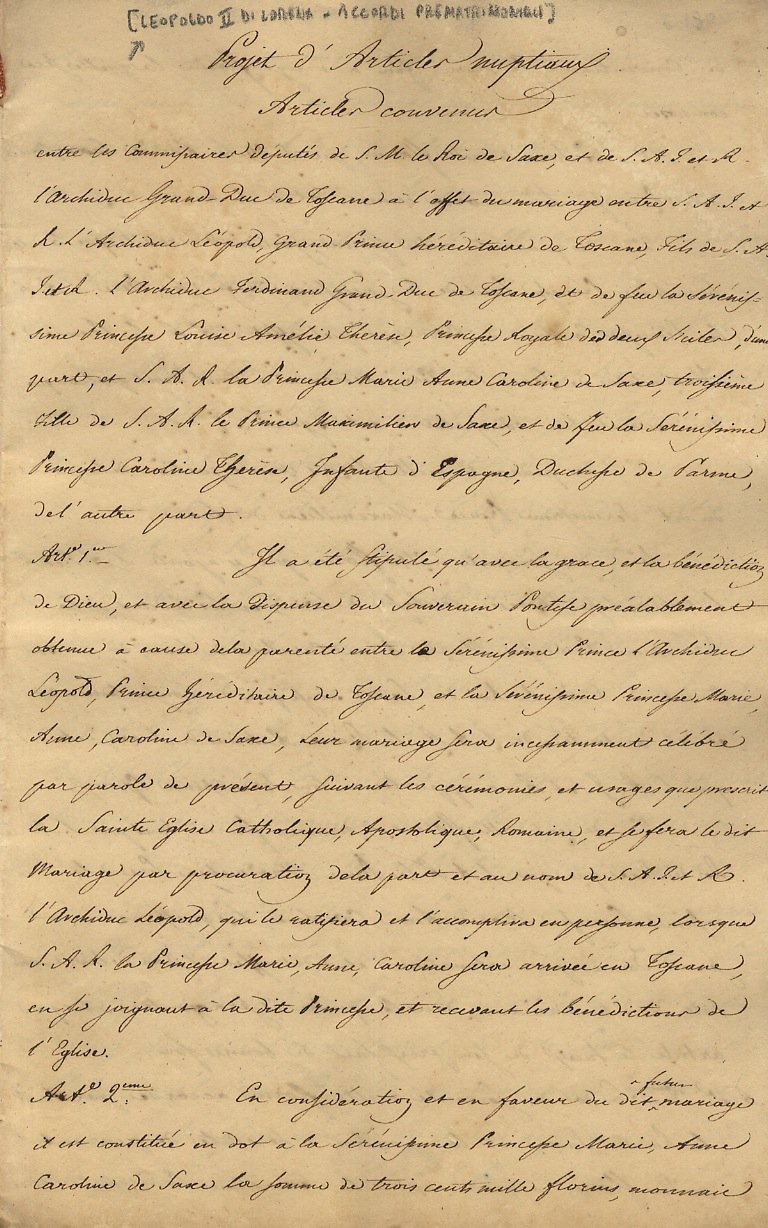 [LEOPOLDO II DI LORENA - ACCORDI PREMATRIMONIALI]
Projet d'Articles nuptiaux
Articles convenus
entre les Commissaires députés de S. M. le Roi de Saxe, et de S. A. I. et R.
l'Archiduc Grand-Duc de Toscane à l'effet du mariage entre S. A. I. et
R. L'Archiduc Léopold, Grand Prince héréditaire de Toscane, Fils de S. A.
I. et R. l'Archiduc Ferdinand Grand-Duc de Toscane, et de feu la Sérénis-
sime Princesse Louise Amélie Therèse, Princesse Royale des deux Siciles, d'une
part, et S. A. R. la Princesse Marie Anne Caroline de Saxe, troisième
Fille de S. A. R. le Prince Maximilien de Saxe, et de feu la Sérénissime
Princesse Caroline Therèse, Infante d'Espagne, Duchesse de Parme,
de l'autre part.
Art.e 1.er Il a été stipulé qu'avec la grace, et la bénédiction
de Dieu, et avec la Dispense du Souverain Pontife préalablement
obtenue à cause dela parenté entre le Sérénissime Prince l'Archiduc
Léopold, Prince Héréditaire de Toscane, et la Sérénissime Princesse Marie,
Anne, Caroline de Saxe, leur mariage sera incessamment célébré
par parole de présent, suivant les cérémonies, et usages que prescrit
la Sainte Eglise Catholique, Apostolique, Romaine, et se fera le dit
Mariage par procuration dela part et au nom de S. A. I. et R.
l'Archiduc Léopold, qui le ratifiera et l'accomplira en personne, lorsque
S. A. R. la Princesse Marie, Anne, Caroline sera arrivée en Toscane,
en se joignant à la dite Princesse, et recevant les bénédictions de
l'Eglise.
Art.e 2.eme En considération et en faveur du dit futur mariage
it est constitué en dot à la Sérénissime Princesse Marie, Anne
Caroline de Saxe la somme de trois cents mille florins, monnaie